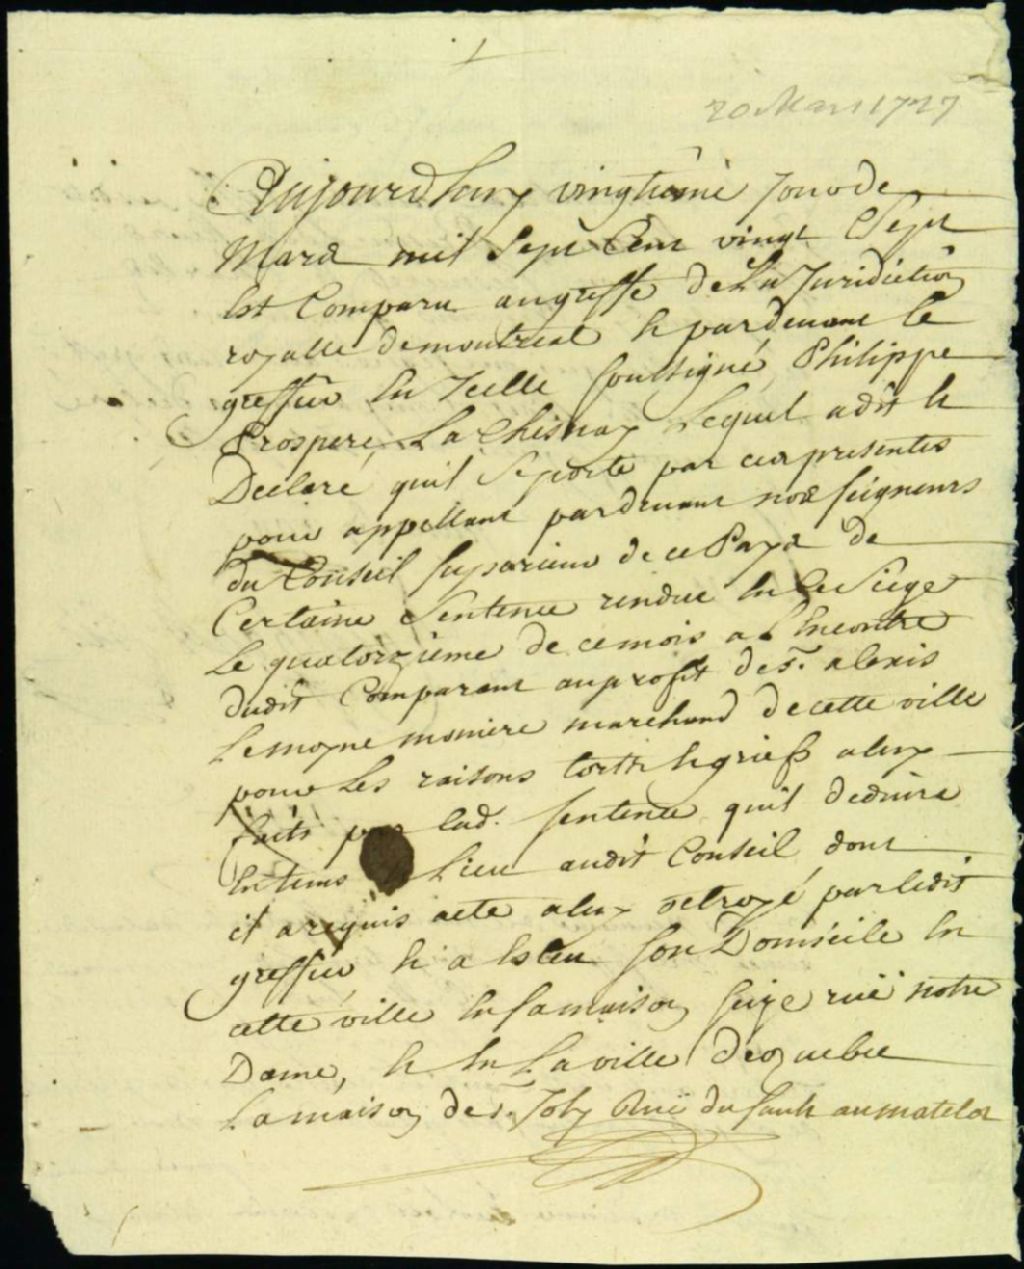 20 Mars 1727
Aujourdhuy vingtiême Jour de
Mars mil Sept Cent vingt Sept
Est Comparu au greffe de La Juridiction
royalle de montreal & pardevant le
greffier En Icelle soussigné, Philippe
Prospere, La Chisnay Lequel a dit &
Declaré quil Se porte par ces presentes
pour appellant pardevant nos seigneurs
du Conseil superieur de ce Paÿs de
Certaine Sentence rendue En ce Siege
Le quatorzieme de ce mois a L'Encontre
dudit Comparant au profit de Sr. alexis
Lemoyne moniere marchand de cette ville
pour Les raisons torts & griefs a luy
faits par lad. sentence quil deduira
En tems & Lieu audit Conseil dont
il a requis acte a luy octroyé par ledit
greffier & a Esleu son Domicile En
cette ville En sa maison size ruë notre
Dame, & En La ville de quebec
La maison de s. Joly Ruë du sault au matelot